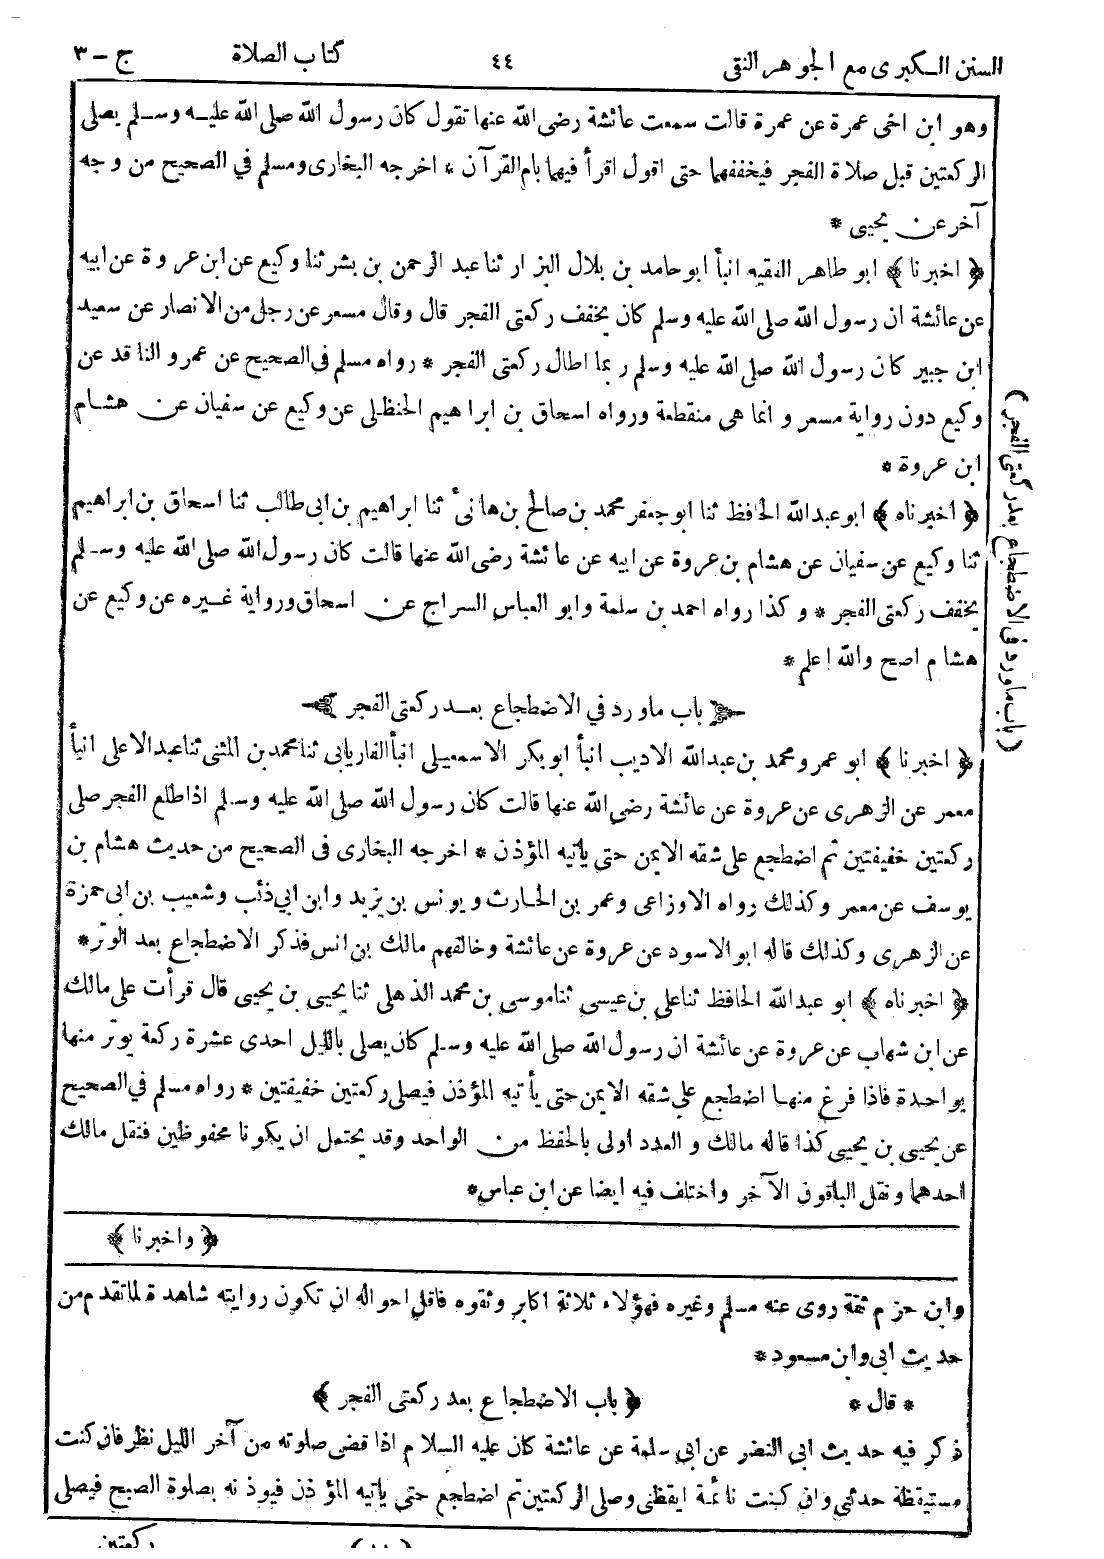 السنن الكبرى مع الجوهر النقى ٤٤ كتاب الصلاة ج - ٣
وهو ابن اخى عمرة عن عمرة قالت سمعت عائشة رضى الله عنها تقول كان رسول الله صلى الله عليه وسلم يصلى
الركعتين قبل صلاة الفجر فيخففهما حتى اقول اقرأ فيهما بام القرآن * اخرجه البخارى ومسلم في الصحيح من وجه
آخر عن يحيى *
﴿ اخبرنا ﴾ ابو طاهر الفقيه انبأ ابو حامد بن بلال البزار ثنا عبد الرحمن بن بشر ثنا وكيع عن ابن عروة عن ابيه
عن عائشة ان رسول الله صلى الله عليه وسلم كان يخفف ركعتى الفجر قال وقال مسعر عن رجل من الانصار عن سعيد
ابن جبير كان رسول الله صلى الله عليه وسلم ربما اطال ركعتى الفجر * رواه مسلم فى الصحيح عن عمرو الناقد عن
وكيع دون رواية مسعر وانما هى منقطعة ورواه اسحاق بن ابراهيم الحنظلى عن وكيع عن سفيان عن هشام
ابن عروة *
﴿ اخبرناه ﴾ ابو عبدالله الحافظ ثنا ابو جعفر محمد بن صالح بن هانئ ثنا ابراهيم بن ابى طالب ثنا اسحاق بن ابراهيم
ثنا وكيع عن سفيان عن هشام بن عروة عن ابيه عن عائشة رضى الله عنها قالت كان رسول الله صلى الله عليه وسلم
يخفف ركعتى الفجر * وكذا رواه احمد بن سلمة وابو العباس السراج عن اسحاق ورواية غيره عن وكيع عن
هشام اصح والله اعلم *
باب ماورد في الاضطجاع بعد ركعتى الفجر
﴿ اخبرنا ﴾ ابو عمرو محمد بن عبدالله الاديب انبأ ابو بكر الاسمعيلى انبأ الفاريابى ثنا محمد بن المثنى ثنا عبد الاعلى انبأ
معمر عن الزهرى عن عروة عن عائشة رضى الله عنها قالت كان رسول الله صلى الله عليه وسلم اذا طلع الفجر صلى
ركعتين خفيفتين ثم اضطجع على شقه الايمن حتى يأتيه المؤذن * اخرجه البخارى فى الصحيح من حديث هشام بن
يوسف عن معمر وكذلك رواه الاوزاعى وعمر بن الحارث ويونس بن يزيد وابن ابي ذئب وشعيب بن ابى حمزة
عن الزهرى وكذلك قاله ابو الاسود عن عروة عن عائشة وخالفهم مالك بن انس فذكر الاضطجاع بعد الوتر *
﴿ اخبرناه ﴾ ابو عبدالله الحافظ ثنا على بن عيسى ثنا موسى بن محمد الذهلى ثنا يحيى بن يحيى قال قرأت على مالك
عن ابن شهاب عن عروة عن عائشة ان رسول الله صلى الله عليه وسلم كان يصلى بالليل احدى عشرة ركعة يوتر منها
بواحدة فاذا فرغ منها اضطجع على شقه الايمن حتى يأتيه المؤذن فيصلى ركعتين خفيفتين * رواه مسلم في الصحيح
عن يحيى بن يحيى كذا قاله مالك والعدد أولى بالحفظ من الواحد وقد يحتمل ان يكونا محفوظين فنقل مالك
احدهما ونقل الباقون الآخر واختلف فيه ايضا عن ابن عباس *
﴿ واخبرنا ﴾
وابن حزم ثقة روى عنه مسلم وغيره فهؤلاء ثلاثة اكابر وثقوه فاقل احواله ان تكون روايته شاهدة لما تقدم من
حديث ابى وابن مسعود *
* قال * ﴿ باب الاضطجاع بعد ركعتى الفجر ﴾
ذكر فيه حديث ابى النضر عن ابي سلمة عن عائشة كان عليه السلام اذا قضى صلوته من آخر الليل نظر فان كنت
مستيقظة حدثنى وان كنت نائمة ايقظنى وصلى الركعتين ثم اضطجع حتى ياتيه المؤذن فيوذنه بصلوة الصبح فيصلى
ركعتين
( باب ماورد فى الاضطجاع بعد ركعتى الفجر )